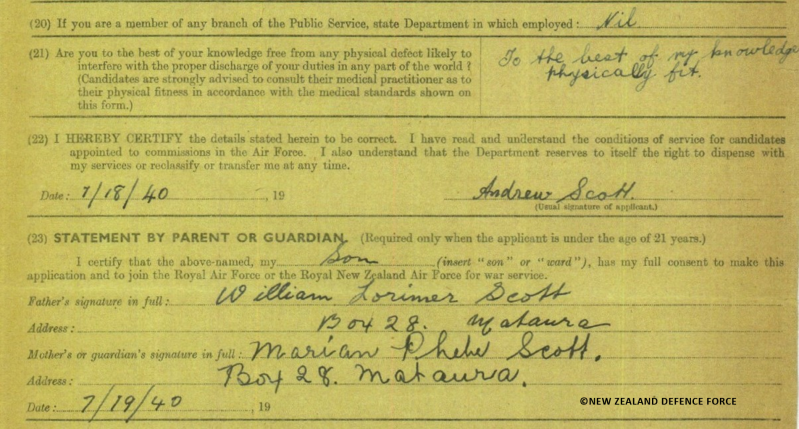 (20) If you are a member of any branch of the Public Service, state Department in which employed : Nil.
(21) Are you to the best of your knowledge free from any physical defect likely to
interfere with the proper discharge of your duties in any part of the world ?
(Candidates are strongly advised to consult their medical practitioner as to
their physical fitness in accordance with the medical standards shown on
this form.)
To the best of my knowledge
physically fit.
(22) I HEREBY CERTIFY the details stated herein to be correct. I have read and understand the conditions of service for candidates
appointed to commissions in the Air Force. I also understand that the Department reserves to itself the right to dispense with
my services or reclassify or transfer me at any time.
Date : 7/18/40 , 19 Andrew Scott.
(Usual signature of applicant.)
(23) STATEMENT BY PARENT OR GUARDIAN (Required only when the applicant is under the age of 21 years.)
I certify that the above-named, my Son (insert "son" or "ward"), has my full consent to make this
application and to join the Royal Air Force or the Royal New Zealand Air Force for war service.
Father's signature in full : William Lorimer Scott
Address : Box 28. Mataura
Mother's or guardian's signature in full : Marian Phebe Scott.
Address : Box 28. Mataura.
Date : 7/19/40 , 19
©NEW ZEALAND DEFENCE FORCE